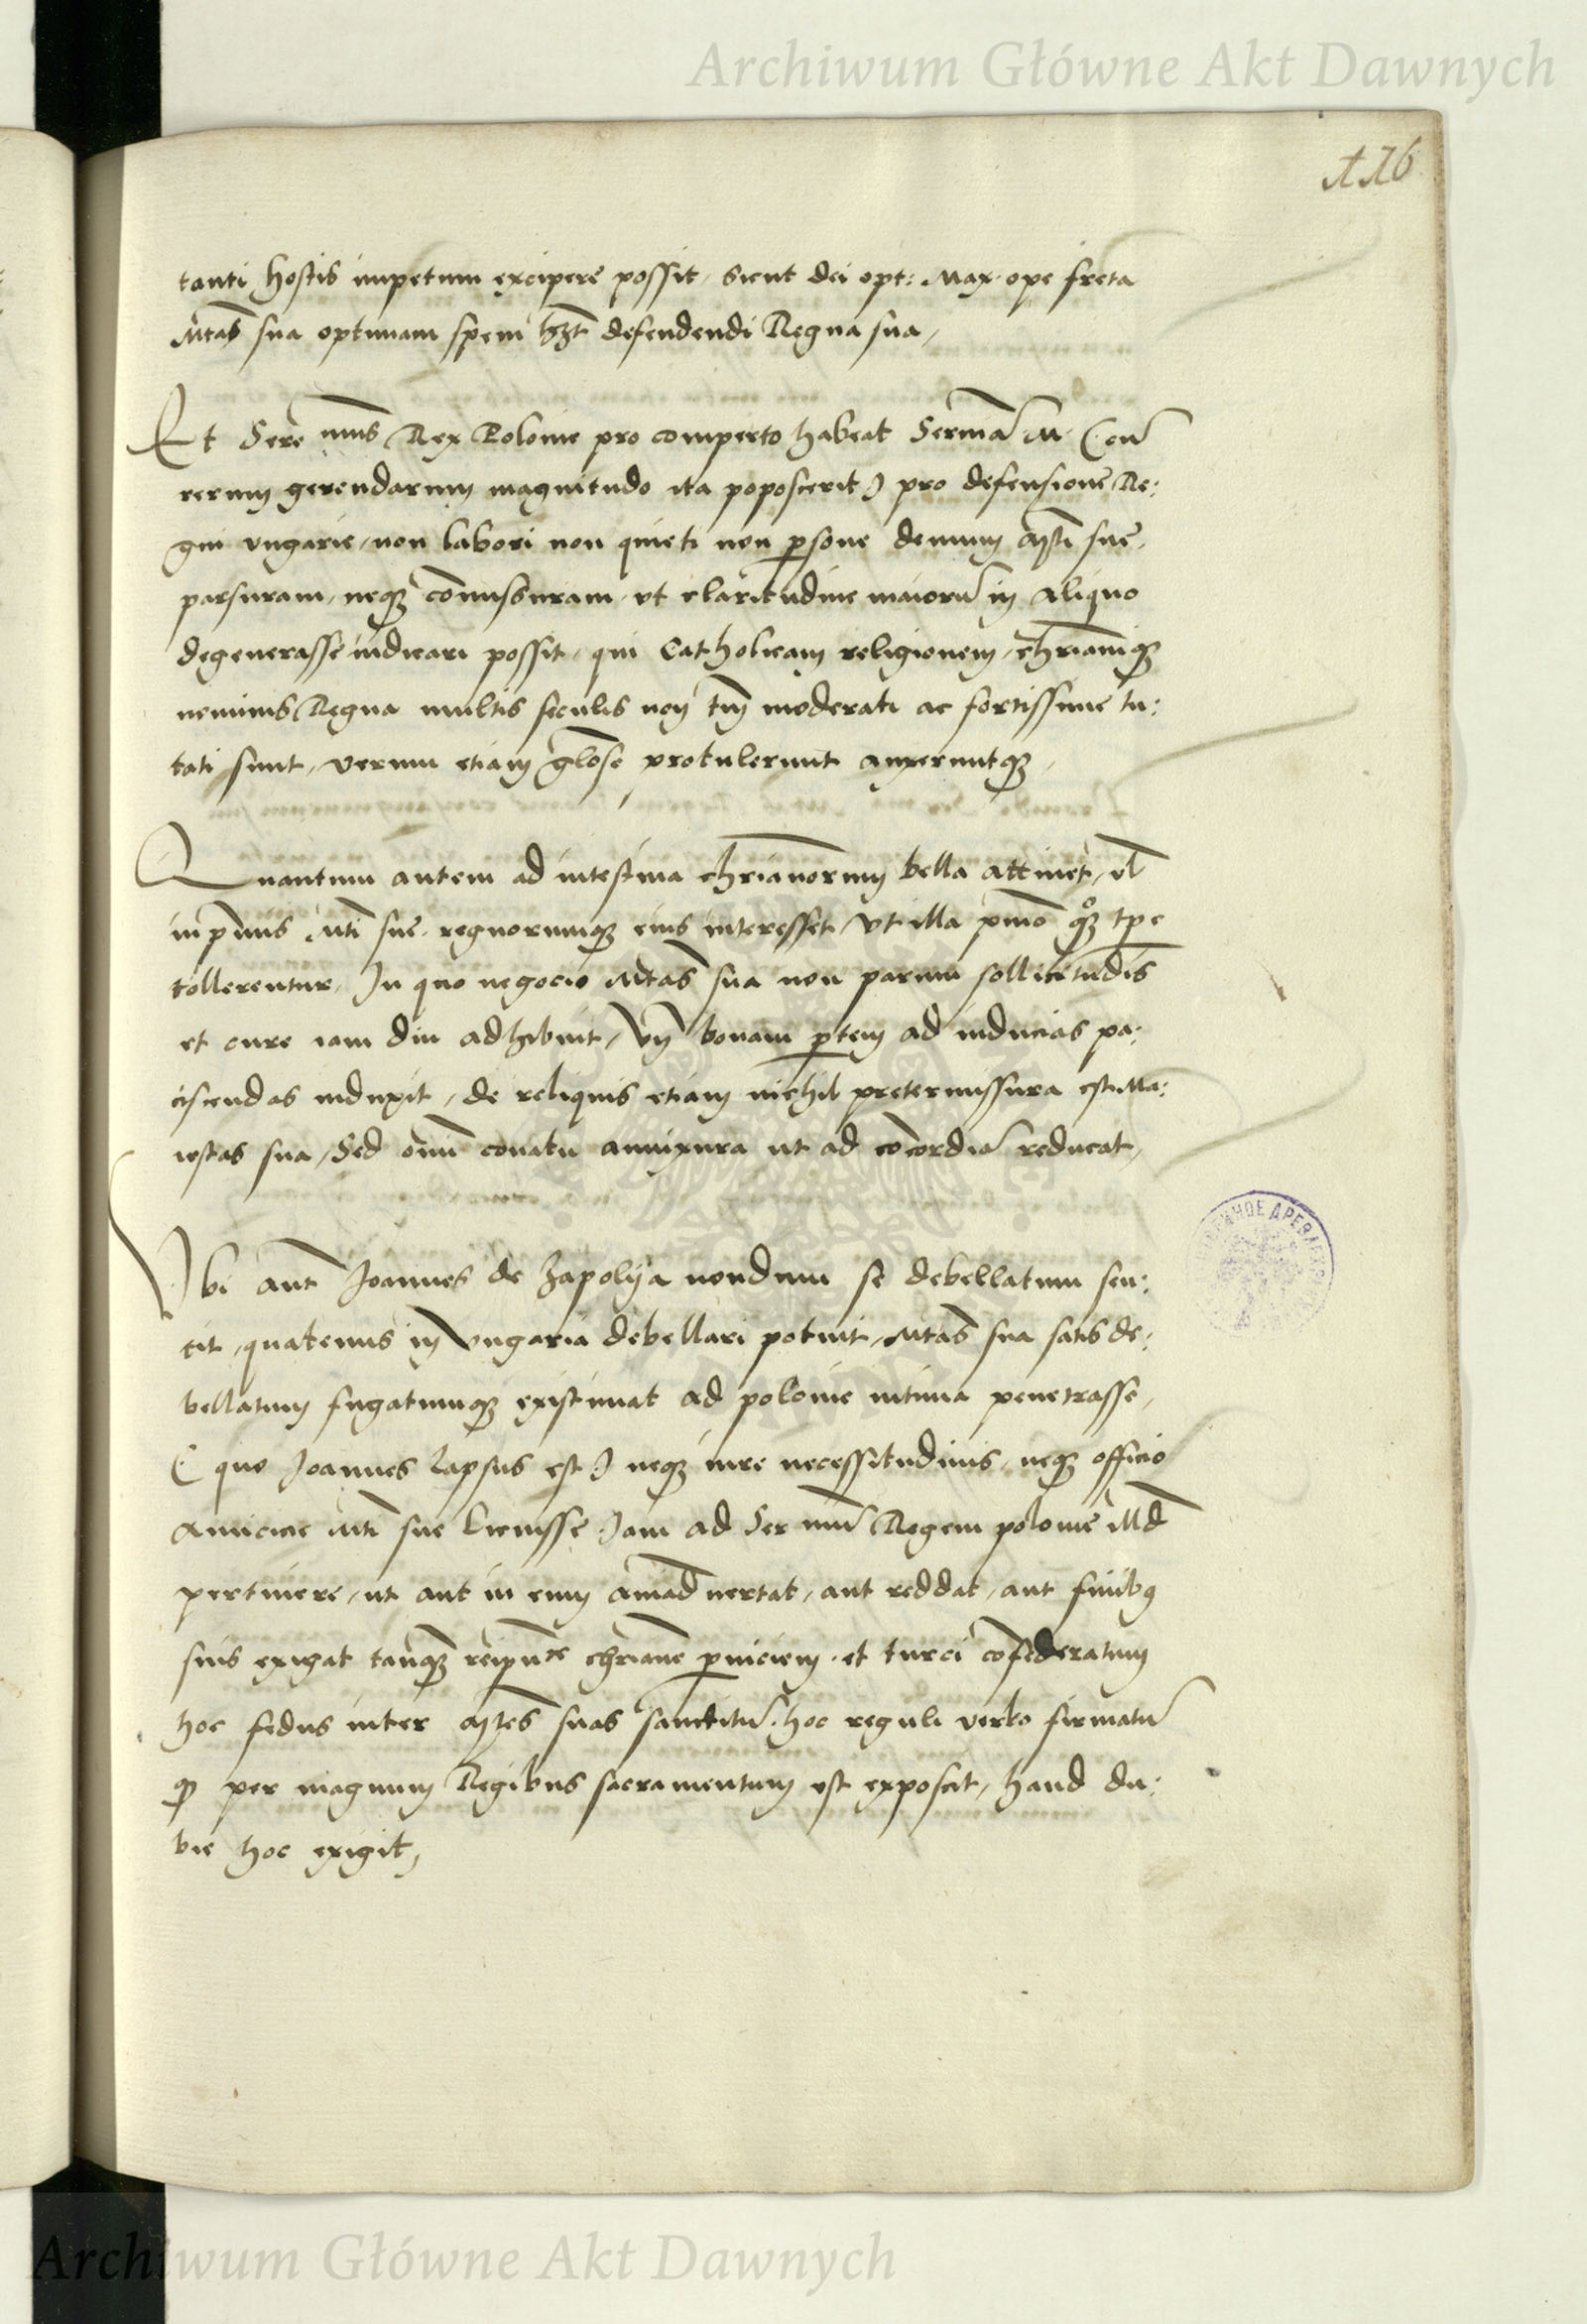 Archiwum Główne Akt Dawnych
116
tanti hostis impetum excipere possit, sicut dei opt: Max. ope freta
Mtas sua optimam spem hẓt defendendi Regna sua,
Et Sere nmus Rex Polonie pro comperto habeat Sermã M. (cũ
rerum gerendarum magnitudo ita poposcerit) pro defensione Re:
gni ungarie, non labori non quieti non p̱sone demum Mti sue,
parsuram, neqꝫ com̃issuram, ut claritudine maiorũ in aliquo
degenerasse iudicari possit, qui Catholicam religionem, chr̃ianiqꝫ
nominis Regna multis seculis non tm̃ moderati ac fortissime tu:
tati sunt, verum etiam gl̃ose protulerunt auxeruntqꝫ,
Quantum autem ad intestina chr̃ianorum bella attinet, vl̃
inp̃mis Mti sue, regnorumqꝫ eius interesset, ut illa p̃mo qꝫo tp̱e
tollerentur, In quo negocio Mtas sua non parum sollicitudĩs
et cure iam diu adhibuit, Vñ bonam p̱tem ad inducias pa:
ciscendas induxit, de reliquis etiam nichil pretermissura est Ma:
iestas sua, Sed om̃i conatu annixura ut ad cõcordiã reducat,
Ubi aut̃ Joannes de Zapolija nondum se debellatum sen:
tit, quatenus in Ungaria debellari potuit, Mtas sua satis de:
bellatum fugatumqꝫ existimat ad polonie intima penetrasse,
(E quo Joannes lapsus est) neqꝫ iure necessitudinis, neqꝫ officio
amicicie Mti sue licuisse. Jam ad Ser mũ Regem polonie illd̃
pertinere, ut aut in eum animad̃vertat, aut reddat, aut finibꝰ
suis exigat tanq̃ꝫ reipu͞ce chr̃iane p̱niciem, et turci confederatum
hoc fedus inter Mtes suas sancitur, hoc reguli verbo firmatur
qꝫ per magnum Regibus sacramentum est exposcit, haud du:
bie hoc exigit,
Archiwum Główne Akt Dawnych